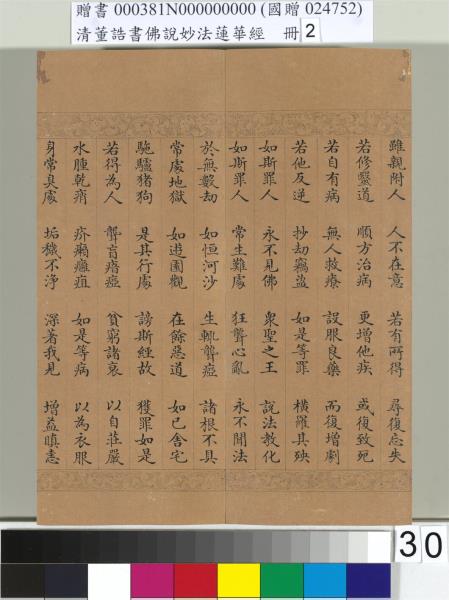 贈書 000381N000000000 (國贈 024752)
清董誥書佛說妙法蓮華經 冊 2
雖親附人 人不在意 若有所得 尋復忘失
若修醫道 順方治病 更增他疾 或復致死
若自有病 無人救療 設服良藥 而復增劇
若他反逆 抄劫竊盜 如是等罪 橫羅其殃
如斯罪人 永不見佛 眾聖之王 說法教化
如斯罪人 常生難處 狂聾心亂 永不聞法
於無數劫 如恒河沙 生輒聾瘂 諸根不具
常處地獄 如遊園觀 在餘惡道 如己舍宅
駞驢猪狗 是其行處 謗斯經故 獲罪如是
若得為人 聾盲瘖瘂 貧窮諸衰 以自莊嚴
水腫乾痟 疥癩癰疽 如是等病 以為衣服
身常臭處 垢穢不淨 深著我見 增益瞋恚
30